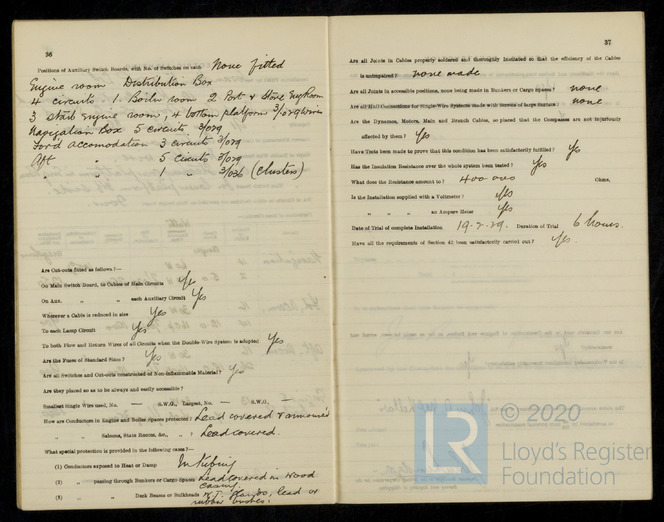 36
Positions of Auxiliary Switch Boards, with No. of Switches on each None fitted
Engine room Distribution Box
4 circuits. 1. Boiler room 2 Port & Store Eng Room
3 Starb Engine room, 4 bottom platform 3/029 wires
Navigation Box 5 circuits 3/029
Ford accomodation 3 circuits 3/029
Aft " 5 circuits 3/029
" " 1 " 3/036 (clusters)
Are Cut-outs fitted as follows?—
On Main Switch Board, to Cables of Main Circuits Yes
On Aux. " " each Auxiliary Circuit Yes
Wherever a Cable is reduced in size Yes
To each Lamp Circuit Yes
To both Flow and Return Wires of all Circuits when the Double-Wire System is adopted Yes
Are the Fuses of Standard Sizes? Yes
Are all Switches and Cut-outs constructed of Non-inflammable Material? Yes
Are they placed so as to be always and easily accessible?
Smallest Single Wire used, No. — S.W.G., Largest, No. — S.W.G. —
How are Conductors in Engine and Boiler Spaces protected? Lead covered & armoured
" " Saloons, State Rooms, &c., " : Lead covered.
What special protection is provided in the following cases?—
(1) Conductors exposed to Heat or Damp In tubing
(2) " passing through Bunkers or Cargo Spaces Lead covered in wood casing
(3) " " Deck Beams or Bulkheads W.T. glands, lead or
bushes.
37
Are all Joints in Cables properly soldered and thoroughly insulated so that the efficiency of the Cables
is unimpaired? none made
Are all Joints in accessible positions, none being made in Bunkers or Cargo Spaces? none
Are all Hull Connections for Single-Wire Systems made with screws of large surface? none
Are the Dynamos, Motors, Main and Branch Cables, so placed that the Compasses are not injuriously
affected by them? Yes
Have Tests been made to prove that this condition has been satisfactorily fulfilled? Yes
Has the Insulation Resistance over the whole system been tested? Yes
What does the Resistance amount to? 400 000 Ohms.
Is the Installation supplied with a Voltmeter? Yes
" " " an Ampere Meter Yes
Date of Trial of complete Installation 19-2-29. Duration of Trial 6 hours.
Have all the requirements of Section 42 been satisfactorily carried out? Yes.
© 2020
LR
Lloyd's Register
Foundation